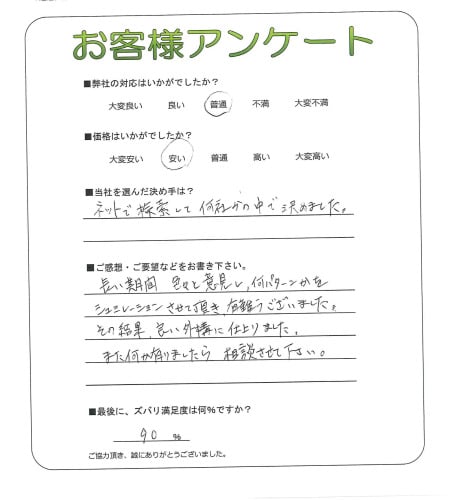 お客様アンケート
■弊社の対応はいかがでしたか?
大変良い 良い 普通 不満 大変不満
■価格はいかがでしたか?
大変安い 安い 普通 高い 大変高い
■当社を選んだ決め手は?
ネットで検索して何社かの中で決めました。
■ご感想・ご要望などをお書き下さい。
長い期間 色々と意見し、何パターンかを
シュミレーションさせて頂き、有難うございました。
その結果、良い外構に仕上りました。
また何か有りましたら 相談させて下さい。
■最後に、ズバリ満足度は何%ですか?
90 %
ご協力頂き、誠にありがとうございました。